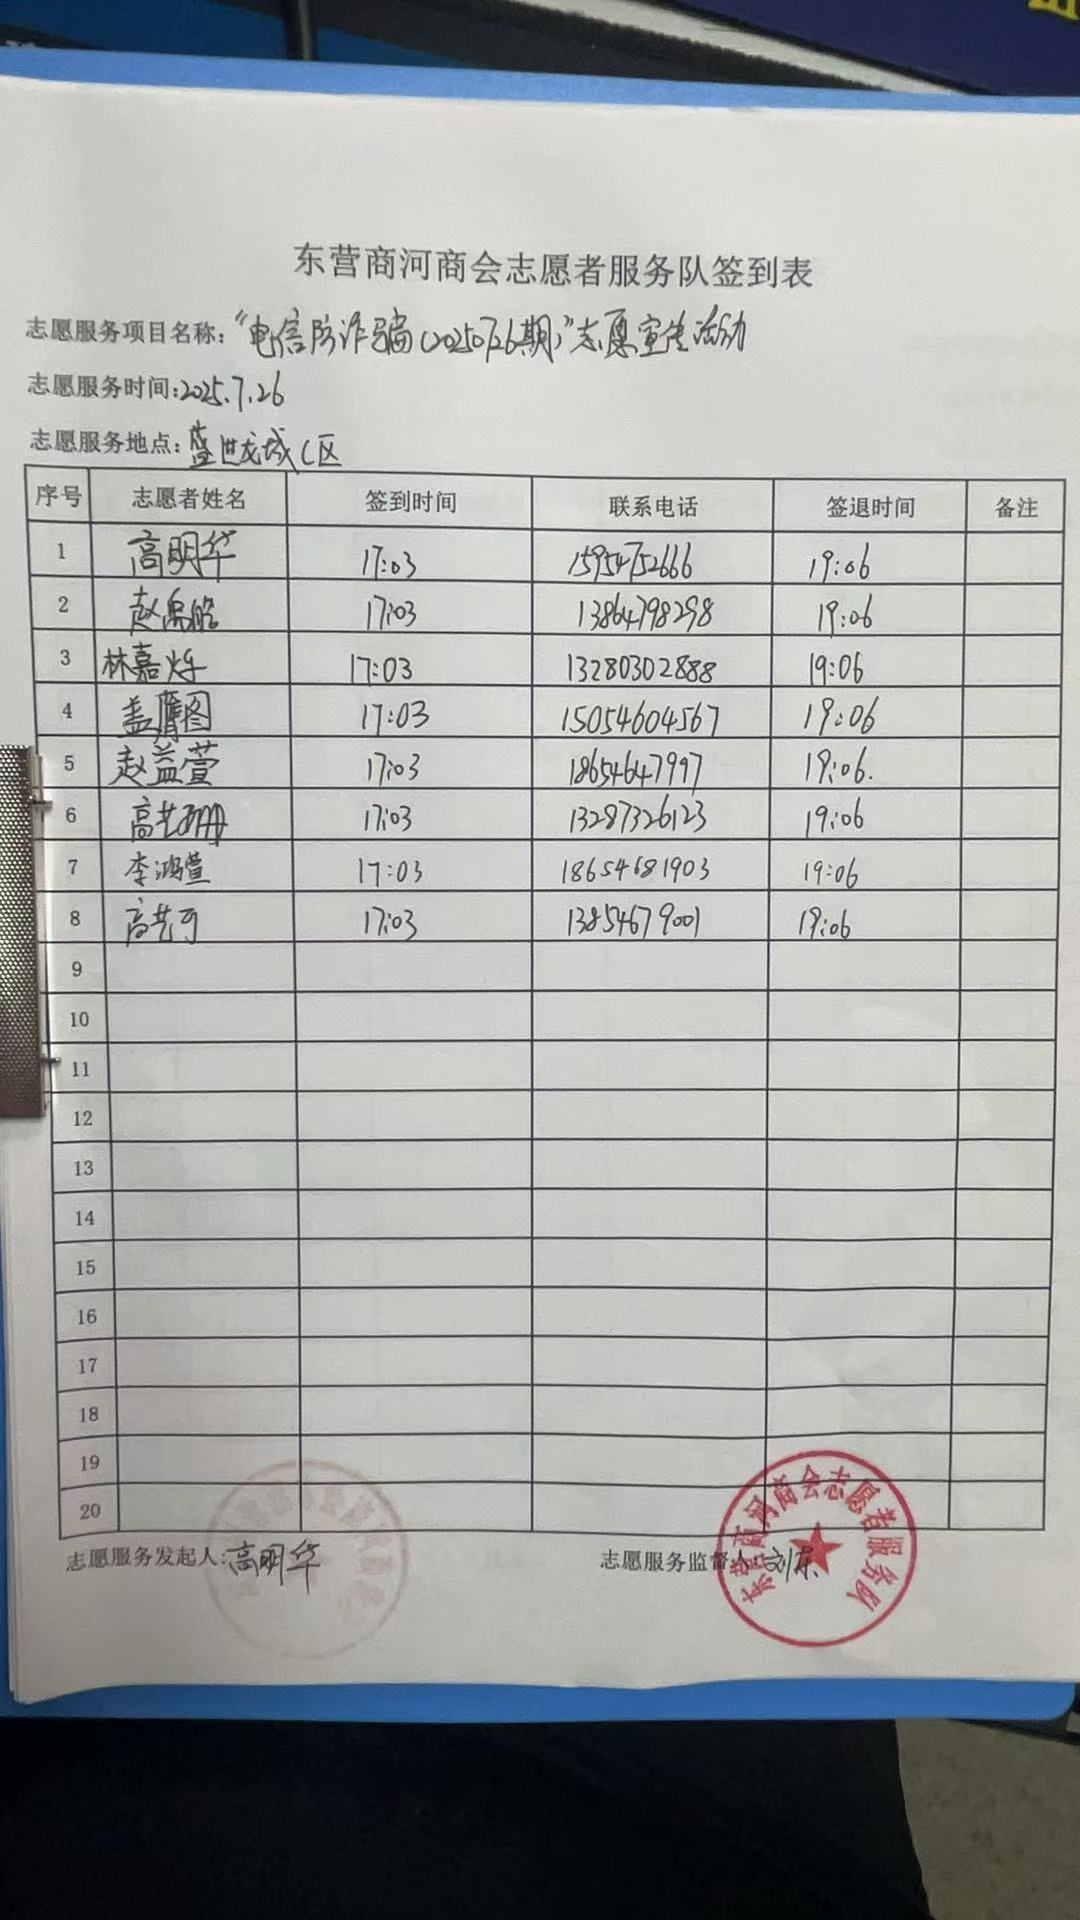 东营商河商会志愿者服务队签到表
志愿服务项目名称:“电信防诈骗(20250726期)”志愿宣传活动
志愿服务时间:2025.7.26
志愿服务地点:盛世龙城C区
序号 志愿者姓名 签到时间 联系电话 签退时间 备注
1 高明华 17:03 15954752666 19:06
2 赵禹皓 17:03 13864798298 19:06
3 林嘉烁 17:03 13280302888 19:06
4 盖鹰图 17:03 15054604567 19:06
5 赵益萱 17:03 18654647997 19:06.
6 高艺珊 17:03 13287326123 19:06
7 李鸿萱 17:03 18654681903 19:06
8 高艺可 17:03 13854679001 19:06
9
10
11
12
13
14
15
16
17
18
19
20
志愿服务发起人:高明华 志愿服务监督人:刘东
东营商河商会志愿者服务队